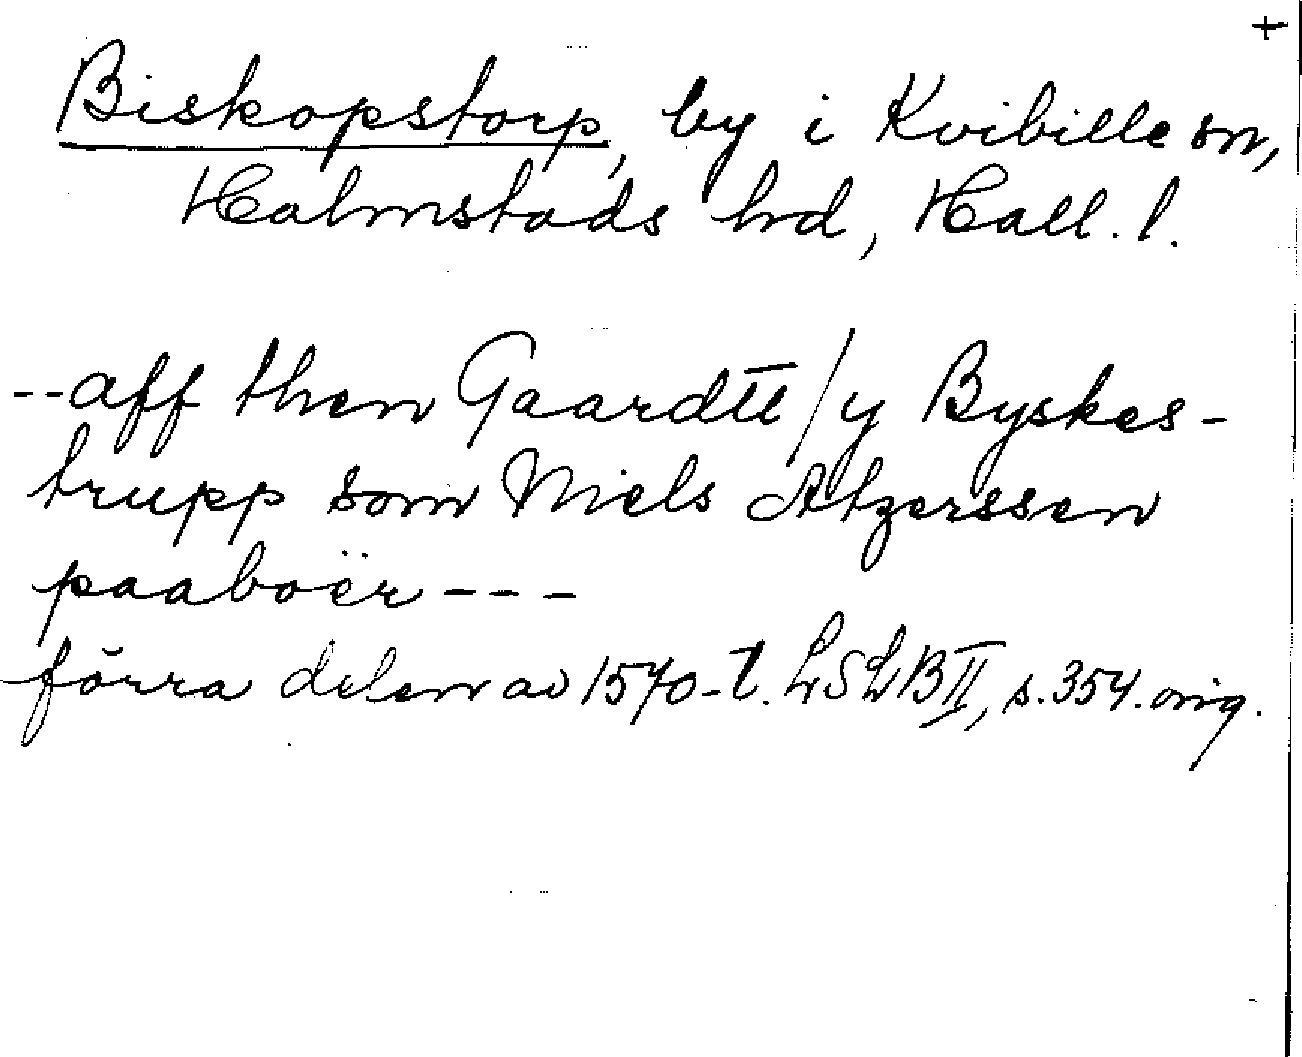 +
Biskopstorp, by i Kvibille sn,
Halmstads hrd, Hall. l.
--aff then Gaardtt / y Byskes-
trupp som Niels Atzerssen
paaboër ---
förra delen av 1570-t. LSLB II, s. 354. orig.